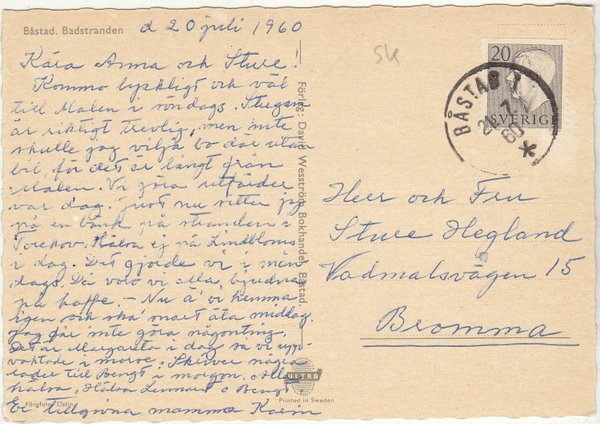 Båstad. Badstranden
d 20 juli 1960
Kära Anna och Sture!
Kommo lyckligt och väl
till Malen i söndags. Stugan
är riktigt trevlig, men inte
skulle jag vilja bo där utan
bil, för det är långt från
Malen. Vi göra utfärder
var dag. Just nu sitter jag
på en bänk på stranden i
Torekov. Hälsa ej på Lindbloms
i dag. Det gjorde vi i mån-
dags. Då voro vi alla bjudna
på kaffe. – Nu ä' vi hemma
igen och ska' snart äta middag.
Jag får inte göra någonting.
Det är Margareta i dag så vi upp-
vaktade i morse. Skriver några
rader till Bengt i morgon. Alla
hälsa, Hälsa Lennart o Bengt
Er tillgivna mamma Karin
Färgfoto:
Förlag: David Wesström, Bokhandel, Båstad.
ULTRA
Printed in Sweden
SK
20
SVERIGE
BÅSTAD 1
21. 7. 60
Herr och Fru
Sture Hegland
Vadmalsvägen 15
Bromma